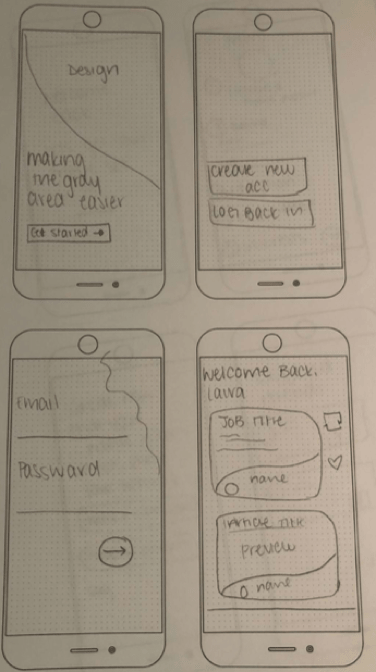 Design
making
the gray
area easier
Get started →
create new
acc
Log Back in
Email
Password
→
Welcome Back,
JOB Title
name
Title
Preview
name